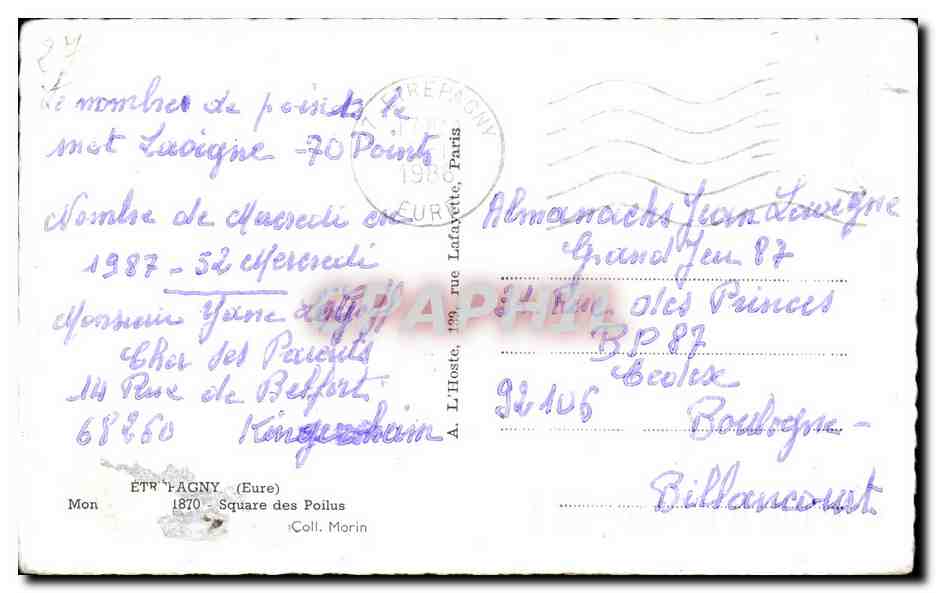 27
Le nombre de points le
mot Lavigne -70 Points
Nombre de Mercredi en
1987 - 52 Mercredi
Monsieur Yane
Cher ses Parents
14 Rue de Belfort
68260 Kingersheim
ÉTR PAGNY (Eure)
Mon 1870 - Square des Poilus
Coll. Morin
ETREPAGNY
1986
EURE
A. L'Hoste, 139, rue Lafayette, Paris
CPAPHIL
Almanachs Jean Lavigne
Grand Jeu 87
31 Rue des Princes
BP 87
Cedex
92106
Boulogne-
Billancourt